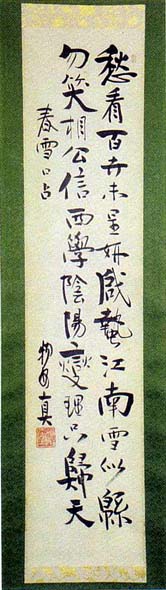 愁看百卉未呈妍蟄江南雪似緜
勿笑相公信西學陰陽燮理只歸天
春雪口占